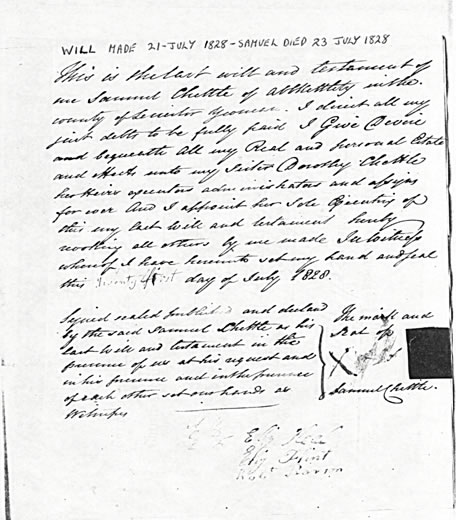 WILL MADE 21-JULY 1828 - SAMUEL DIED 23 JULY 1828
This is the last will and testament of
me Samuel Chettle of in the
county of Leicester Yeoman. I direct all my
just debts to be fully paid I Give Devise
and Bequeath All my Real and personal Estate
and effects unto my Sister Dorothy Chettle
her Heirs executors administrators and assigns
for ever And I appoint her Sole Executrix of
this my last Will and testament hereby
revoking all others by me made In witness
whereof I have hereunto set my hand and seal
this twenty first day of July 1828.
Signed sealed published and declared
by the said Samuel Chettle as his
last Will and testament in the
presence of us at his request and
in his presence and in the presence
of each other set our hands as
Witnesses
The mark and
Seal of
X
Samuel Chettle.